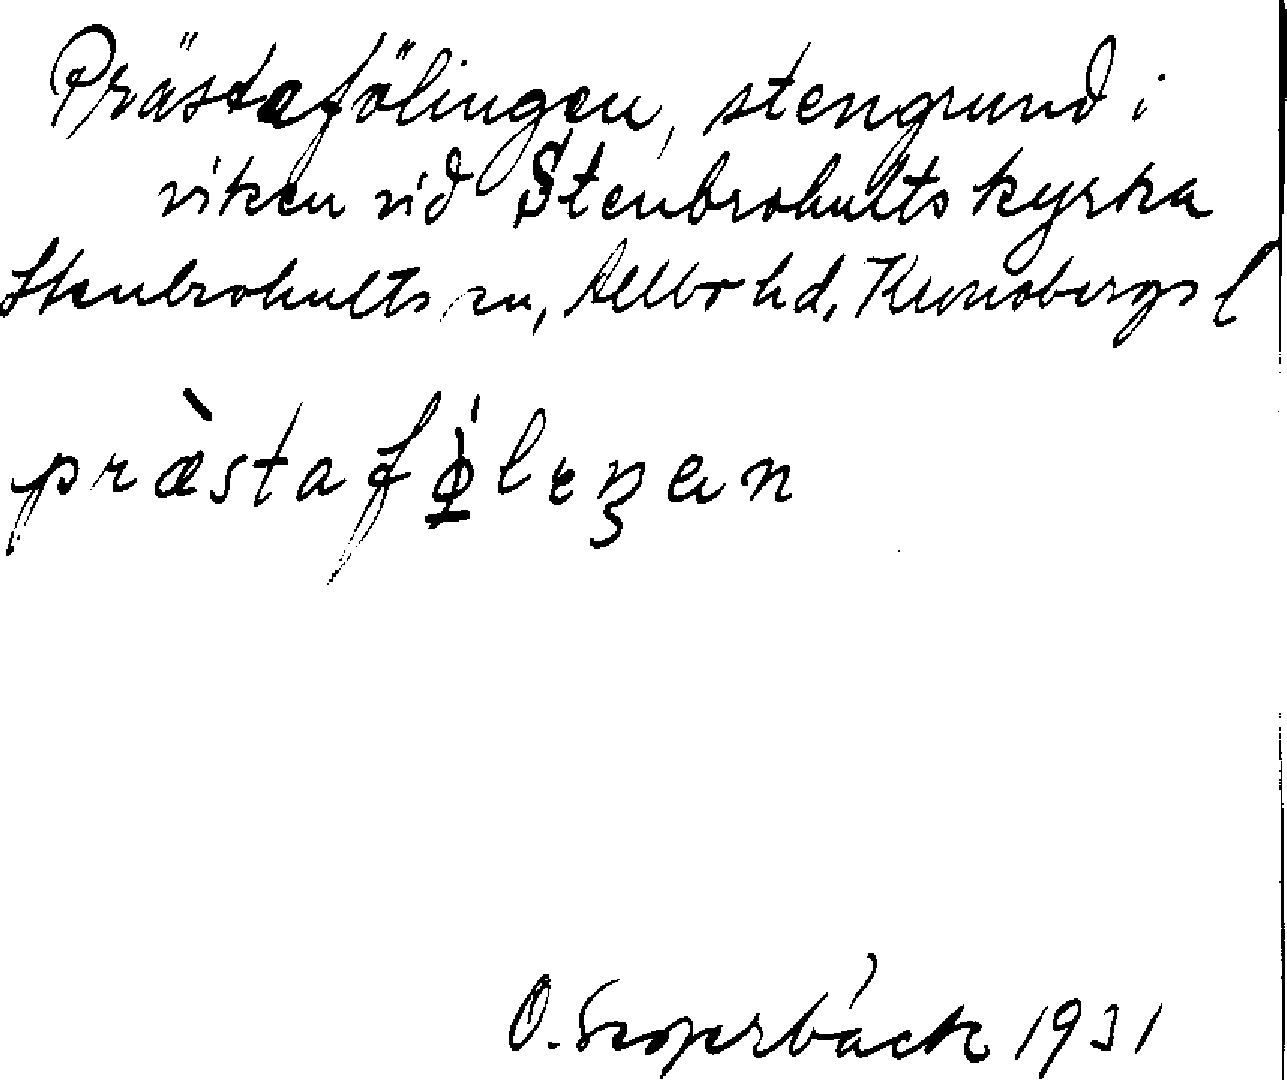 Prästafölingen, stengrund i
viken vid Stenbrohults kyrka
Stenbrohults sn, Allbo hd, Kronobergs l
præ̀stafǿ̱lɪŋən
O. 1931